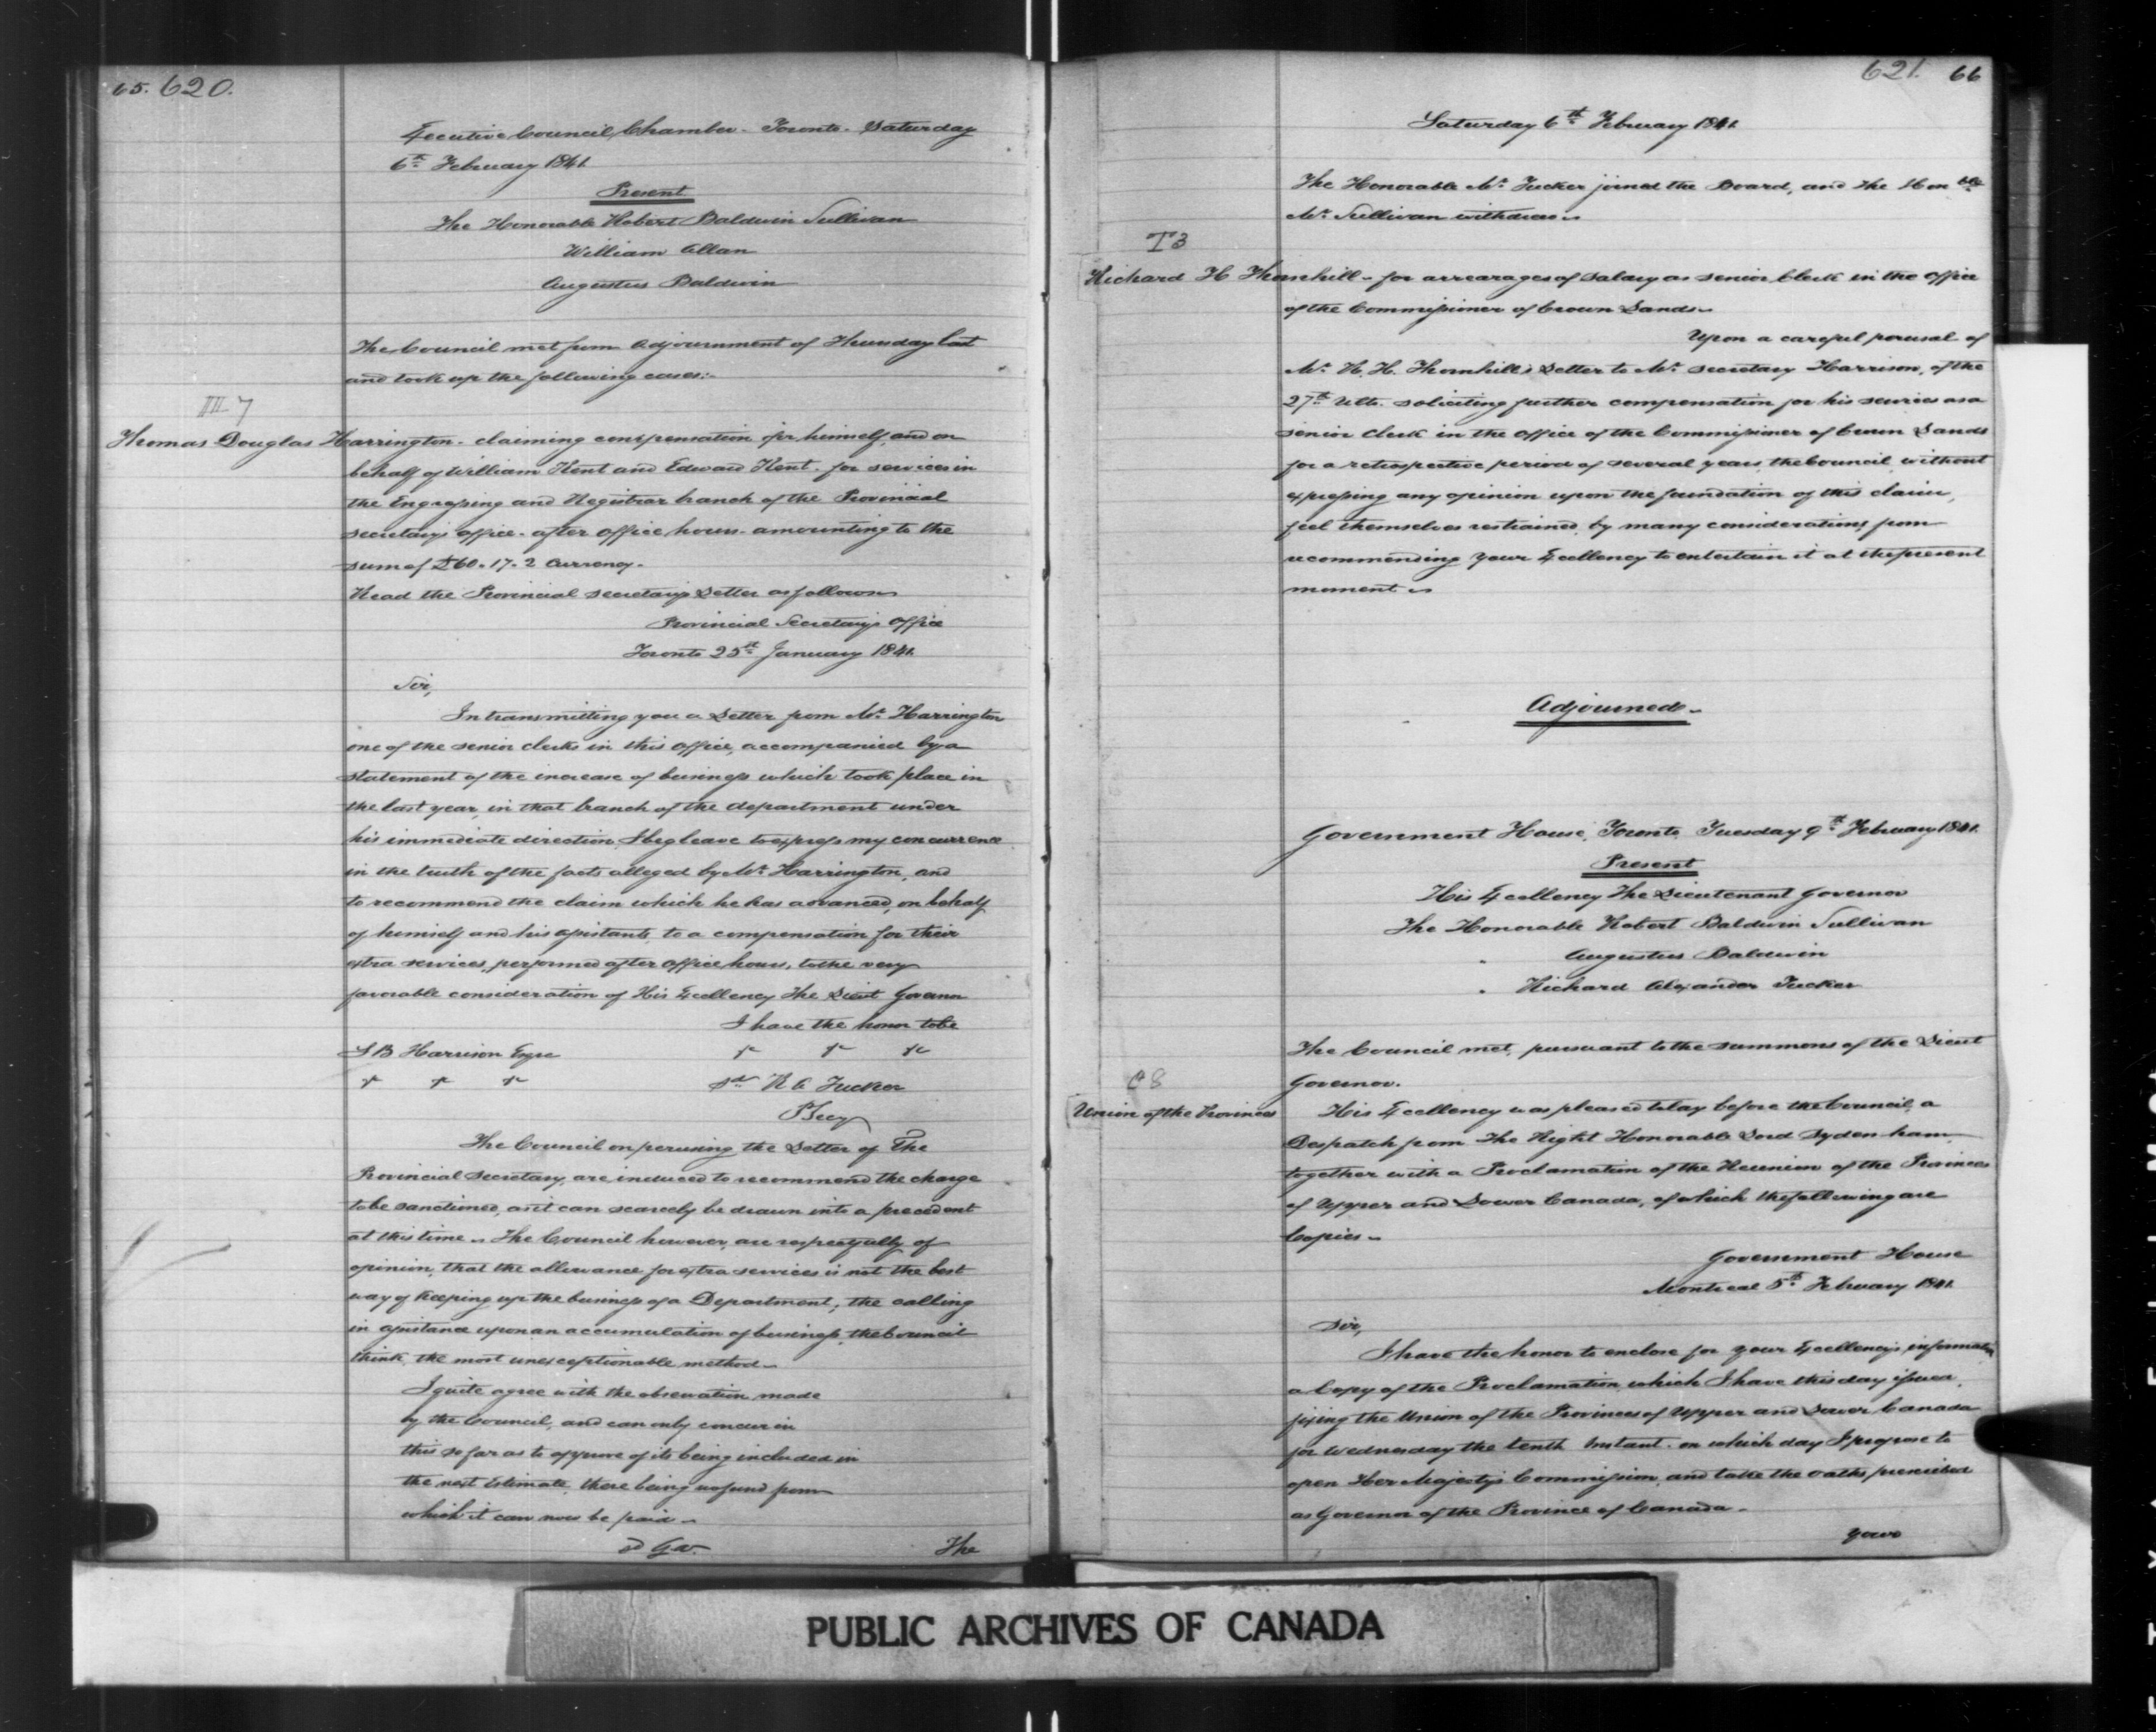 65. 620.
Executive Council Chamber - Toronto - Saturday
6th February 1841.
Present
The Honorable Robert Baldwin Sullivan
William Allan
Augustus Baldwin
The Council met from adjournment of Thursday last
and took up the following cases:-
H 7
Thomas Douglas Harrington - claiming compensation for himself and on
behalf of William Kent and Edward Kent - for services in
the Engrossing and Registrar branch of the Provincial
Secretary's office - after office hours - amounting to the
sum of £60.17.2 Currency.
Read the Provincial Secretary's Letter as follows
Provincial Secretary's Office
Toronto 25th January 1841.
Sir,
In transmitting you a Letter from Mr. Harrington
one of the senior clerks in this office, accompanied by a
statement of the increase of business which took place in
the last year, in that branch of the department under
his immediate direction I beg leave to express my concurrence
in the truth of the facts alleged by Mr. Harrington, and
to recommend the claim which he has advanced, on behalf
of himself and his assistants, to a compensation for their
extra services, performed after office hours, to the very
favorable consideration of His Excellency The Lieut Governor
I have the honor to be
S B Harrison Esqre &c &c &c
&c &c &c sd R A Tucker
P Secy
The Council on perusing the Letter of The
Provincial Secretary are induced to recommend the charge
to be sanctioned, as it can scarcely be drawn into a precedent
at this time. The Council however, are respectfully of
opinion, that the allowance for extra services is not the best
way of keeping up the business of a Department; the calling
in assistance upon an accumulation of business, the Council
think, the most unexceptionable method.
I quite agree with the observation made
by the Council, and can only concur in
this so far as to approve of its being included in
the next Estimate, there being no fund from
which it can now be paid -
sd G.A. The
621. 66
Saturday 6th February 1841.
The Honorable Mr. Tucker joined the Board, and the Honble
Mr. Sullivan withdrew.
T 3
Richard H Thornhill - for arrearages of salary as senior Clerk in the office
of the Commissioner of Crown Lands.
Upon a careful perusal of
Mr. R. H. Thornhill's Letter to Mr. Secretary Harrison, of the
27th Ulto. soliciting further compensation for his services as a
senior Clerk in the office of the Commissioner of Crown Lands
for a retrospective period of several years, the Council, without
expressing any opinion upon the foundation of this claim,
feel themselves restrained, by many considerations, from
recommending Your Excellency to entertain it at the present
moment.
Adjourned.
Government House, Toronto, Tuesday 9th February 1841.
Present
His Excellency The Lieutenant Governor
The Honorable Robert Baldwin Sullivan
" Augustus Baldwin
" Richard Alexander Tucker
The Council met, pursuant to the summons of the Lieut
Governor.
C 8
Union of the Provinces His Excellency was pleased to lay before the Council, a
Despatch from The Right Honorable Lord Sydenham,
together with a Proclamation of the Reunion of the Provinces
of Upper and Lower Canada, of which the following are
Copies -
Government House
Montreal 5th February 1841.
Sir,
I have the honor to enclose for your Excellency's information
a Copy of the Proclamation, which I have this day issued,
fixing the Union of the Provinces of Upper and Lower Canada
for Wednesday the tenth Instant - on which day I propose to
open Her Majesty's Commission, and take the oaths prescribed
as Governor of the Province of Canada -
Your
PUBLIC ARCHIVES OF CANADA